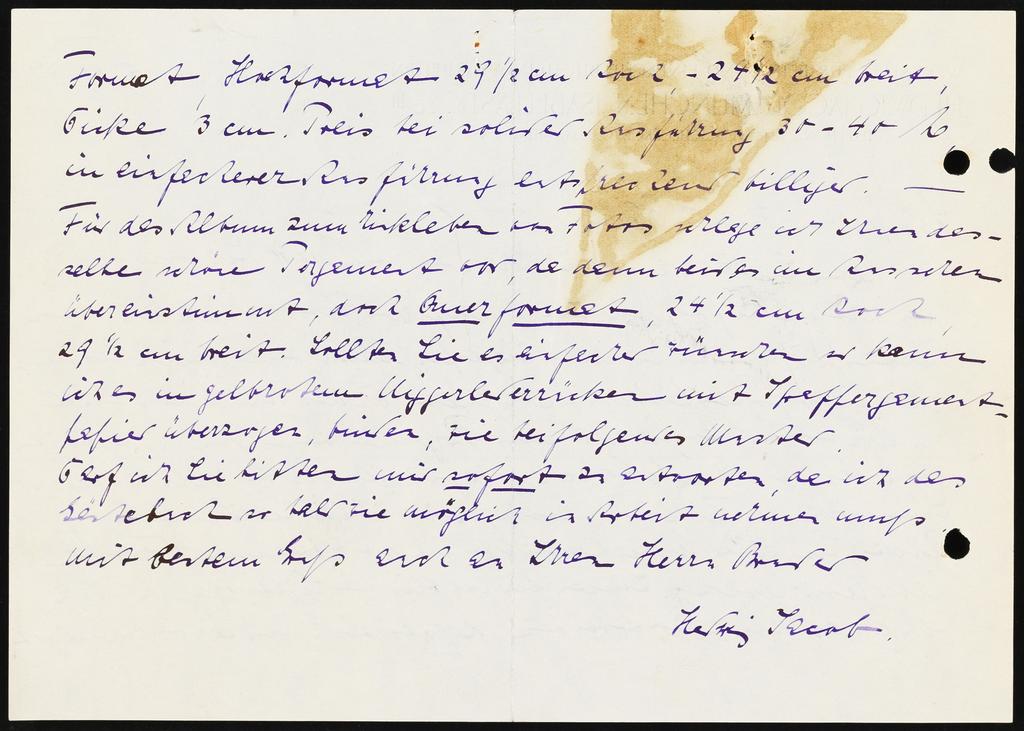 Format, Hochformat 29 1/2 cm hoch, - 24 1/2 cm breit,
Dicke 3 cm. Preis bei solider Ausführung 30 - 40 M
in einfacherer Ausführung entsprechend billiger. —
Für das Album zum Einkleben von Fotos schlage ich Ihnen das-
selbe schöne Pergament vor, da dann beides im Aussehen
übereinstimmt, doch Querformat, 24 1/2 cm hoch,
29 1/2 cm breit. Sollten Sie es einfacher wünschen so kann
ich es in gelbrotem Nigerlederrücken mit Pergament-
papier überzogen, binden, wie beifolgendes Muster.
Darf ich Sie bitten mir sofort zu antworten, da ich das
Gästebuch so bald wie möglich in Arbeit nehmen muss.
mit bestem Gruß auch an Ihren Herrn Bruder
Hedwig Jacob.